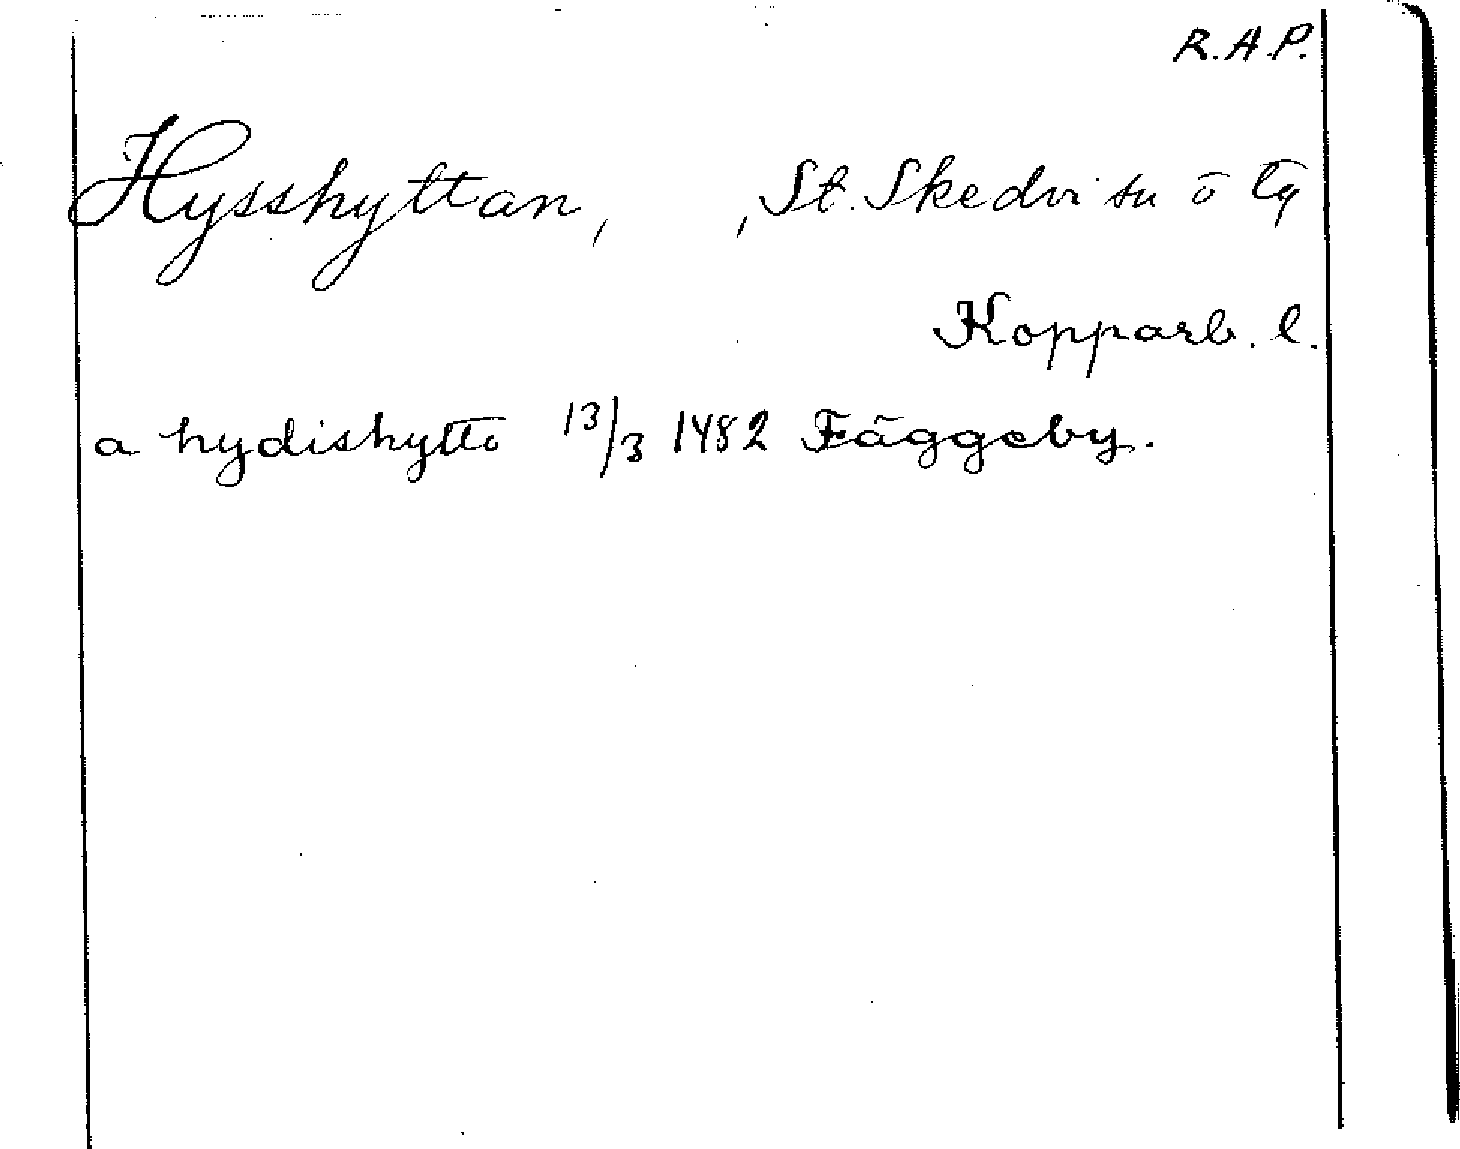 R.A.P.
Hysshyttan, , St. Skedvi sn o tg
Kopparb. l.
a hydishytto 13/3 1482 Fäggeby.